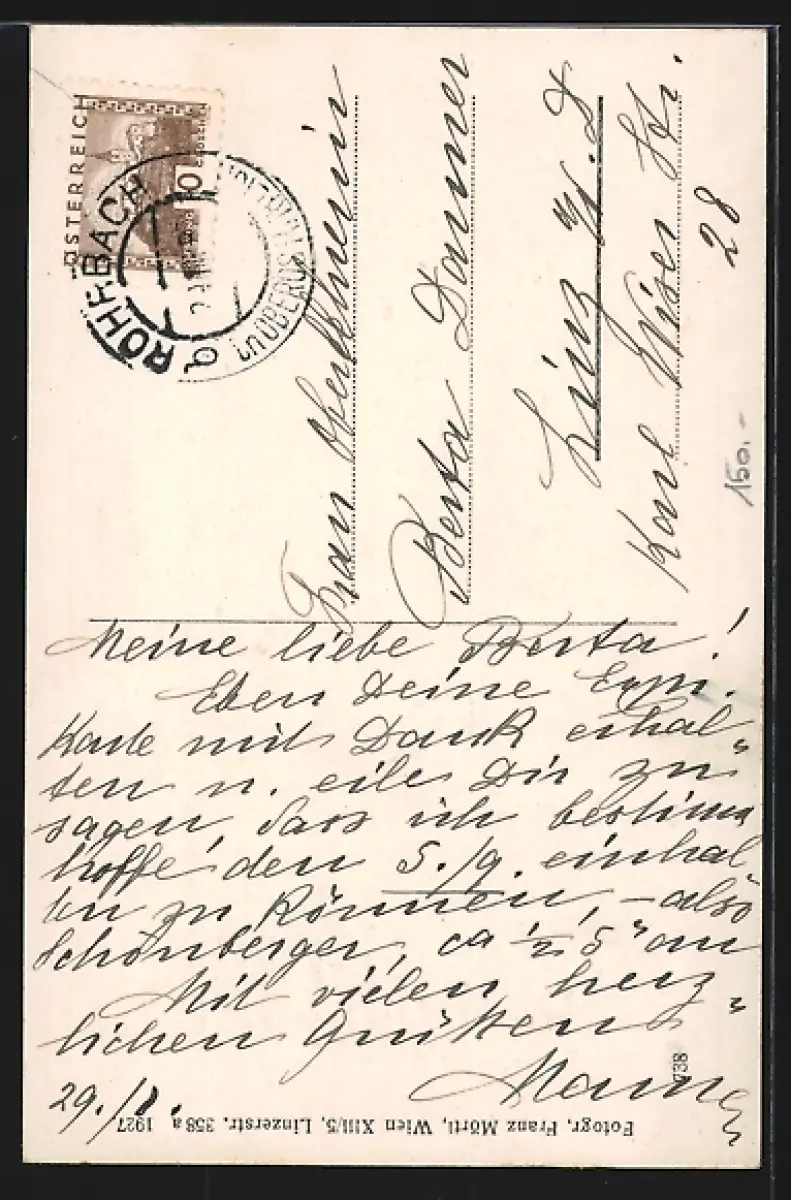 ÖSTERREICH
10
GROSCHEN
ROHRBACH
in OBERÖST.
Frau Oberlehrerin
Berta Danner
Linz a/D
Karl Wiser Str.
28
150.-
Meine liebe Berta!
Eben Deine
Karte mit Dank erhal„
ten u. eile Dir zu
sagen, dass ich bestimmt
hoffe den 5./9. einhal„
ten zu können, – also
Schönberger, ca ½ 5"
Mit vielen herz„
lichen Grüßen
29./8.
738
Fotogr. Franz Mörtl, Wien XIII/5, Linzerstr. 358a 1927